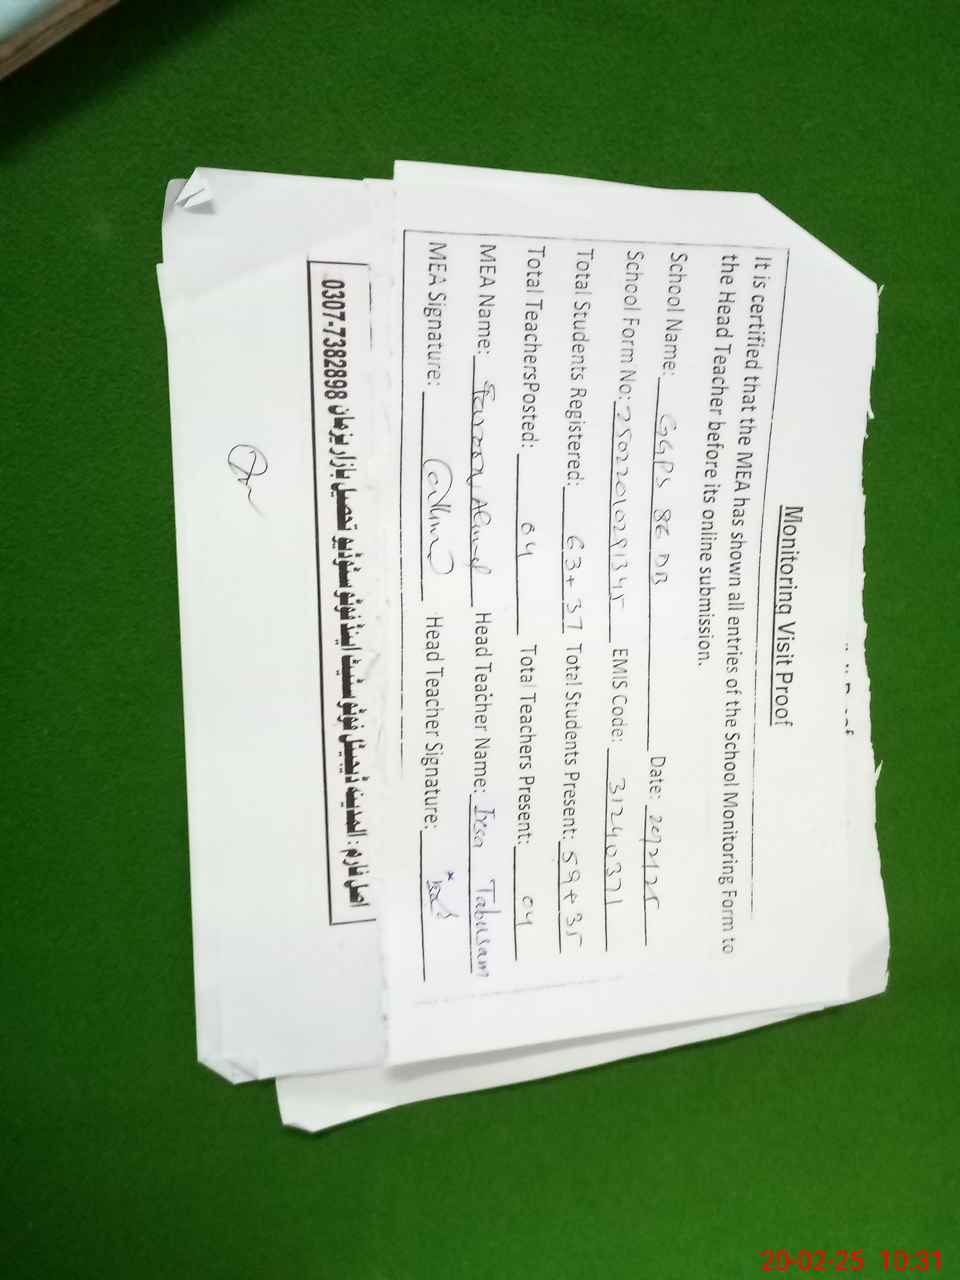 Monitoring Visit Proof
It is certified that the MEA has shown all entries of the School Monitoring Form to
the Head Teacher before its online submission.
School Name: GGPS 86 DB Date: 20/2/25
School Form No: 25022010291345 EMIS Code: 31240371
Total Students Registered: 63+37 Total Students Present: 59+35
Total TeachersPosted: 04 Total Teachers Present: 04
MEA Name: Ahmed Head Teacher Name: Irsa Tabusam
MEA Signature: Head Teacher Signature:
اصل فارم : المدینہ ڈیجیٹل فوٹو سٹیٹ اینڈ فوٹو سٹوڈیو تحصیل بازار یزمان 0307-7382898
20-02-25 10:31